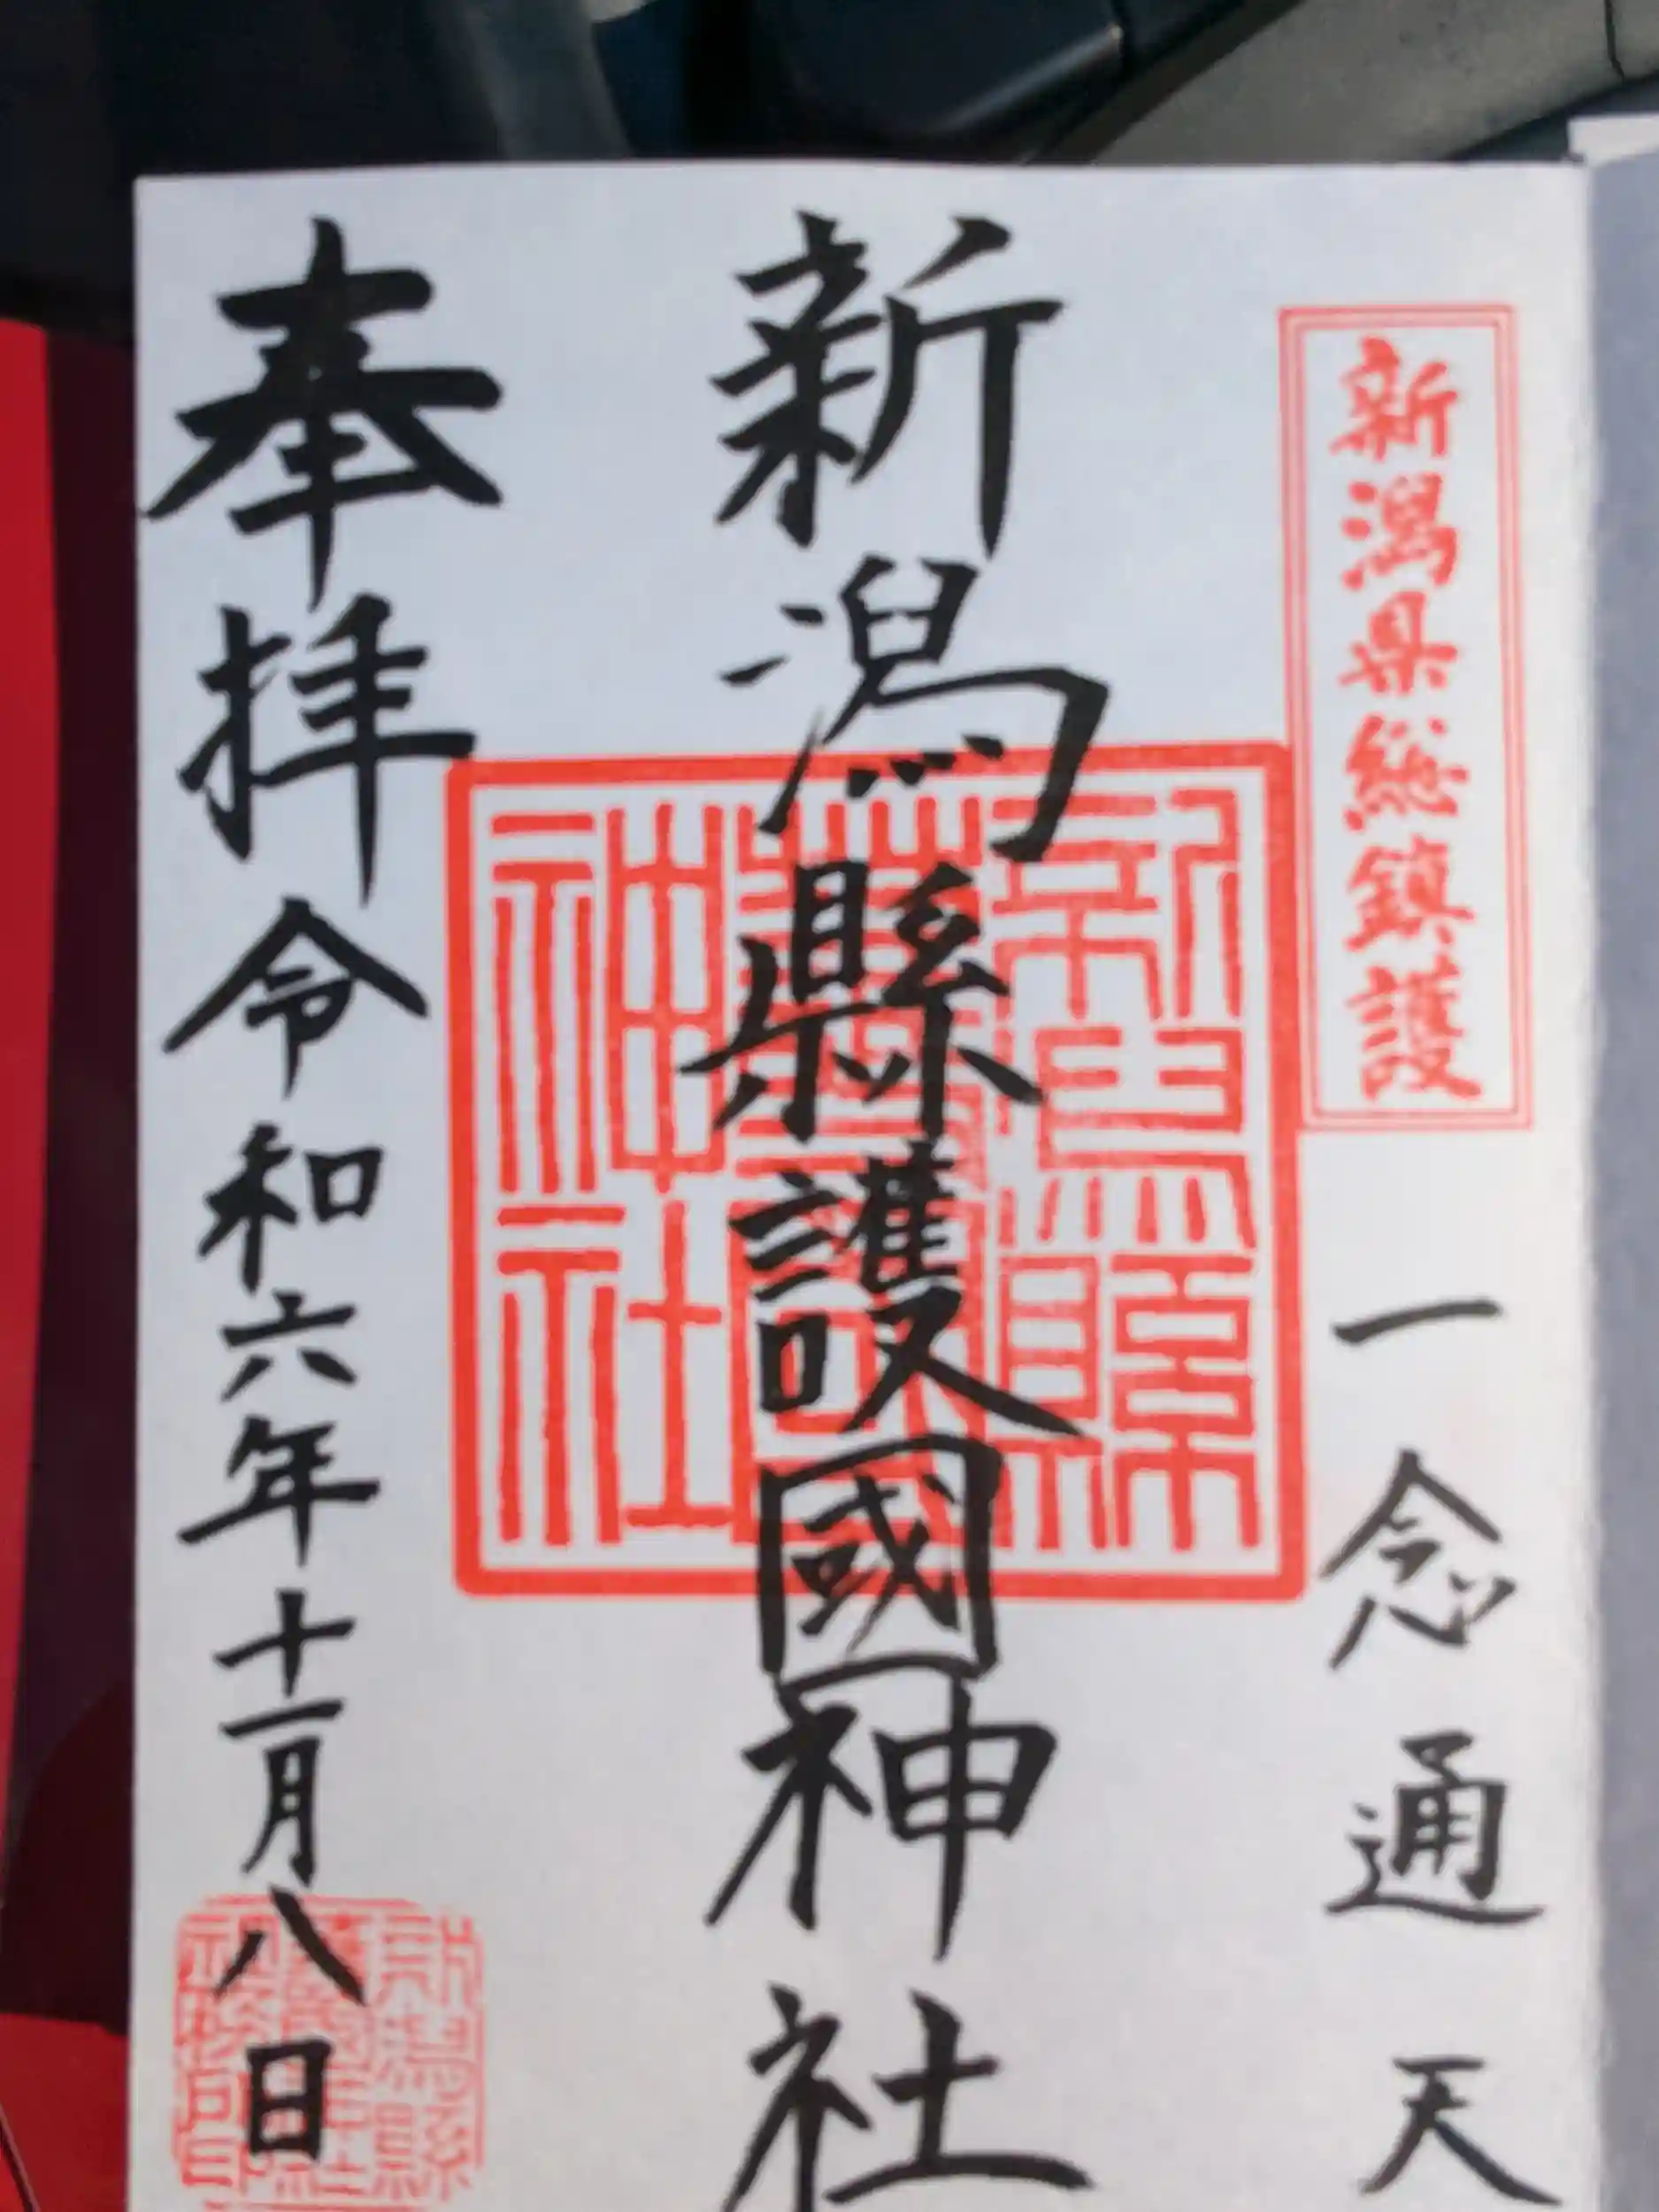 新潟県総鎮護
一念通天
新潟縣護國神社
新潟縣護國神社
奉拝 令和六年十一月八日